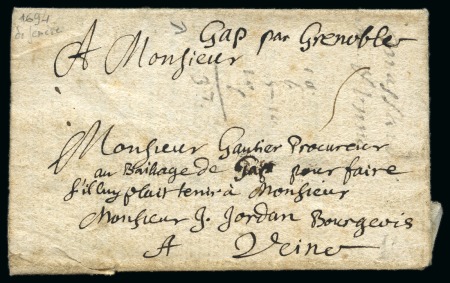 1694
Gap par Grenoble
A Monsieur
Monsieur Gautier Procureur
au Bailiage de Gap pour faire
s'il luy plait tenir à Monsieur
Monsieur J. Jordan Bourgeois
A Veine